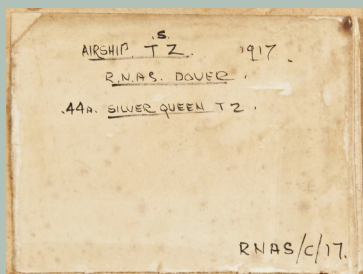 .S.
AIRSHIP. T Z. 1917.
R.N.A.S. DOVER.
.44A. SILVER QUEEN T Z.
RNAS/C/17.